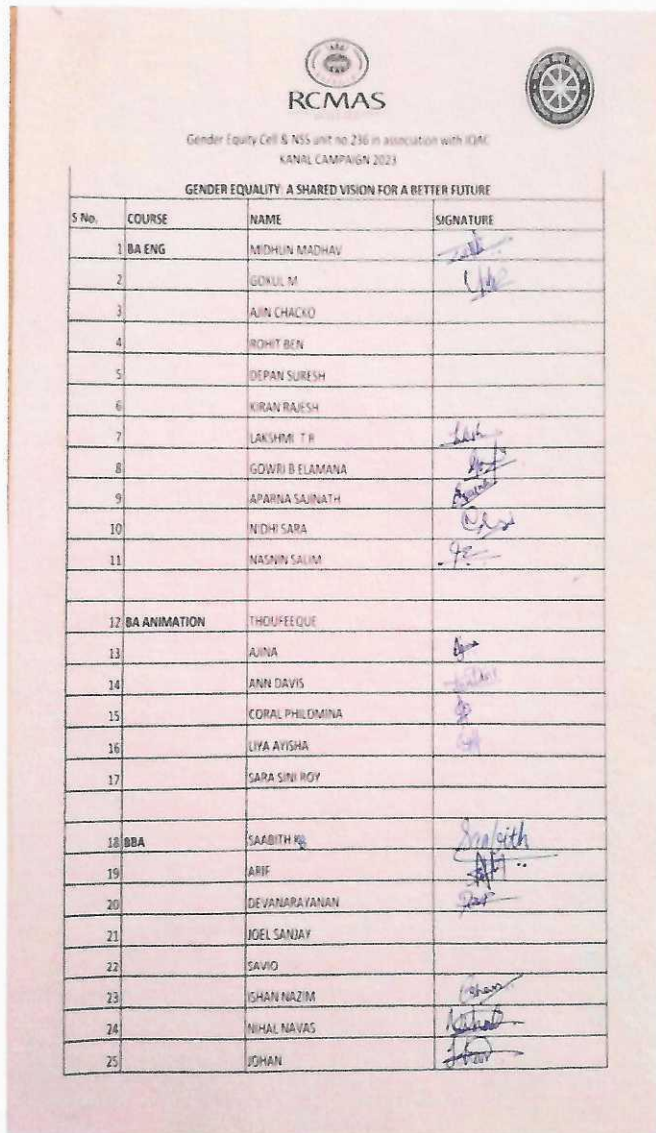 RCMAS
Gender Equity Cell & NSS unit no 236 in association with IQAC
KANAL CAMPAIGN 2023
GENDER EQUALITY: A SHARED VISION FOR A BETTER FUTURE
S No. COURSE NAME SIGNATURE
1 BA ENG MIDHUN MADHAV
2 GOKUL M
3 AJIN CHACKO
4 ROHIT BEN
5 DEPAN SURESH
6 KIRAN RAJESH
7 LAKSHMI T R
8 GOWRI B ELAMANA
9 APARNA SAJINATH
10 NIDHI SARA
11 NASNIN SALIM
12 BA ANIMATION THOUFEEQUE
13 AJINA
14 ANN DAVIS
15 CORAL PHILOMINA
16 LIYA AYISHA
17 SARA SINI ROY
18 BBA SAABITH Saabith
19 ARIF
20 DEVANARAYANAN
21 JOEL SANJAY
22 SAVIO
23 ISHAN NAZIM
24 NIHAL NAVAS
25 JOHAN